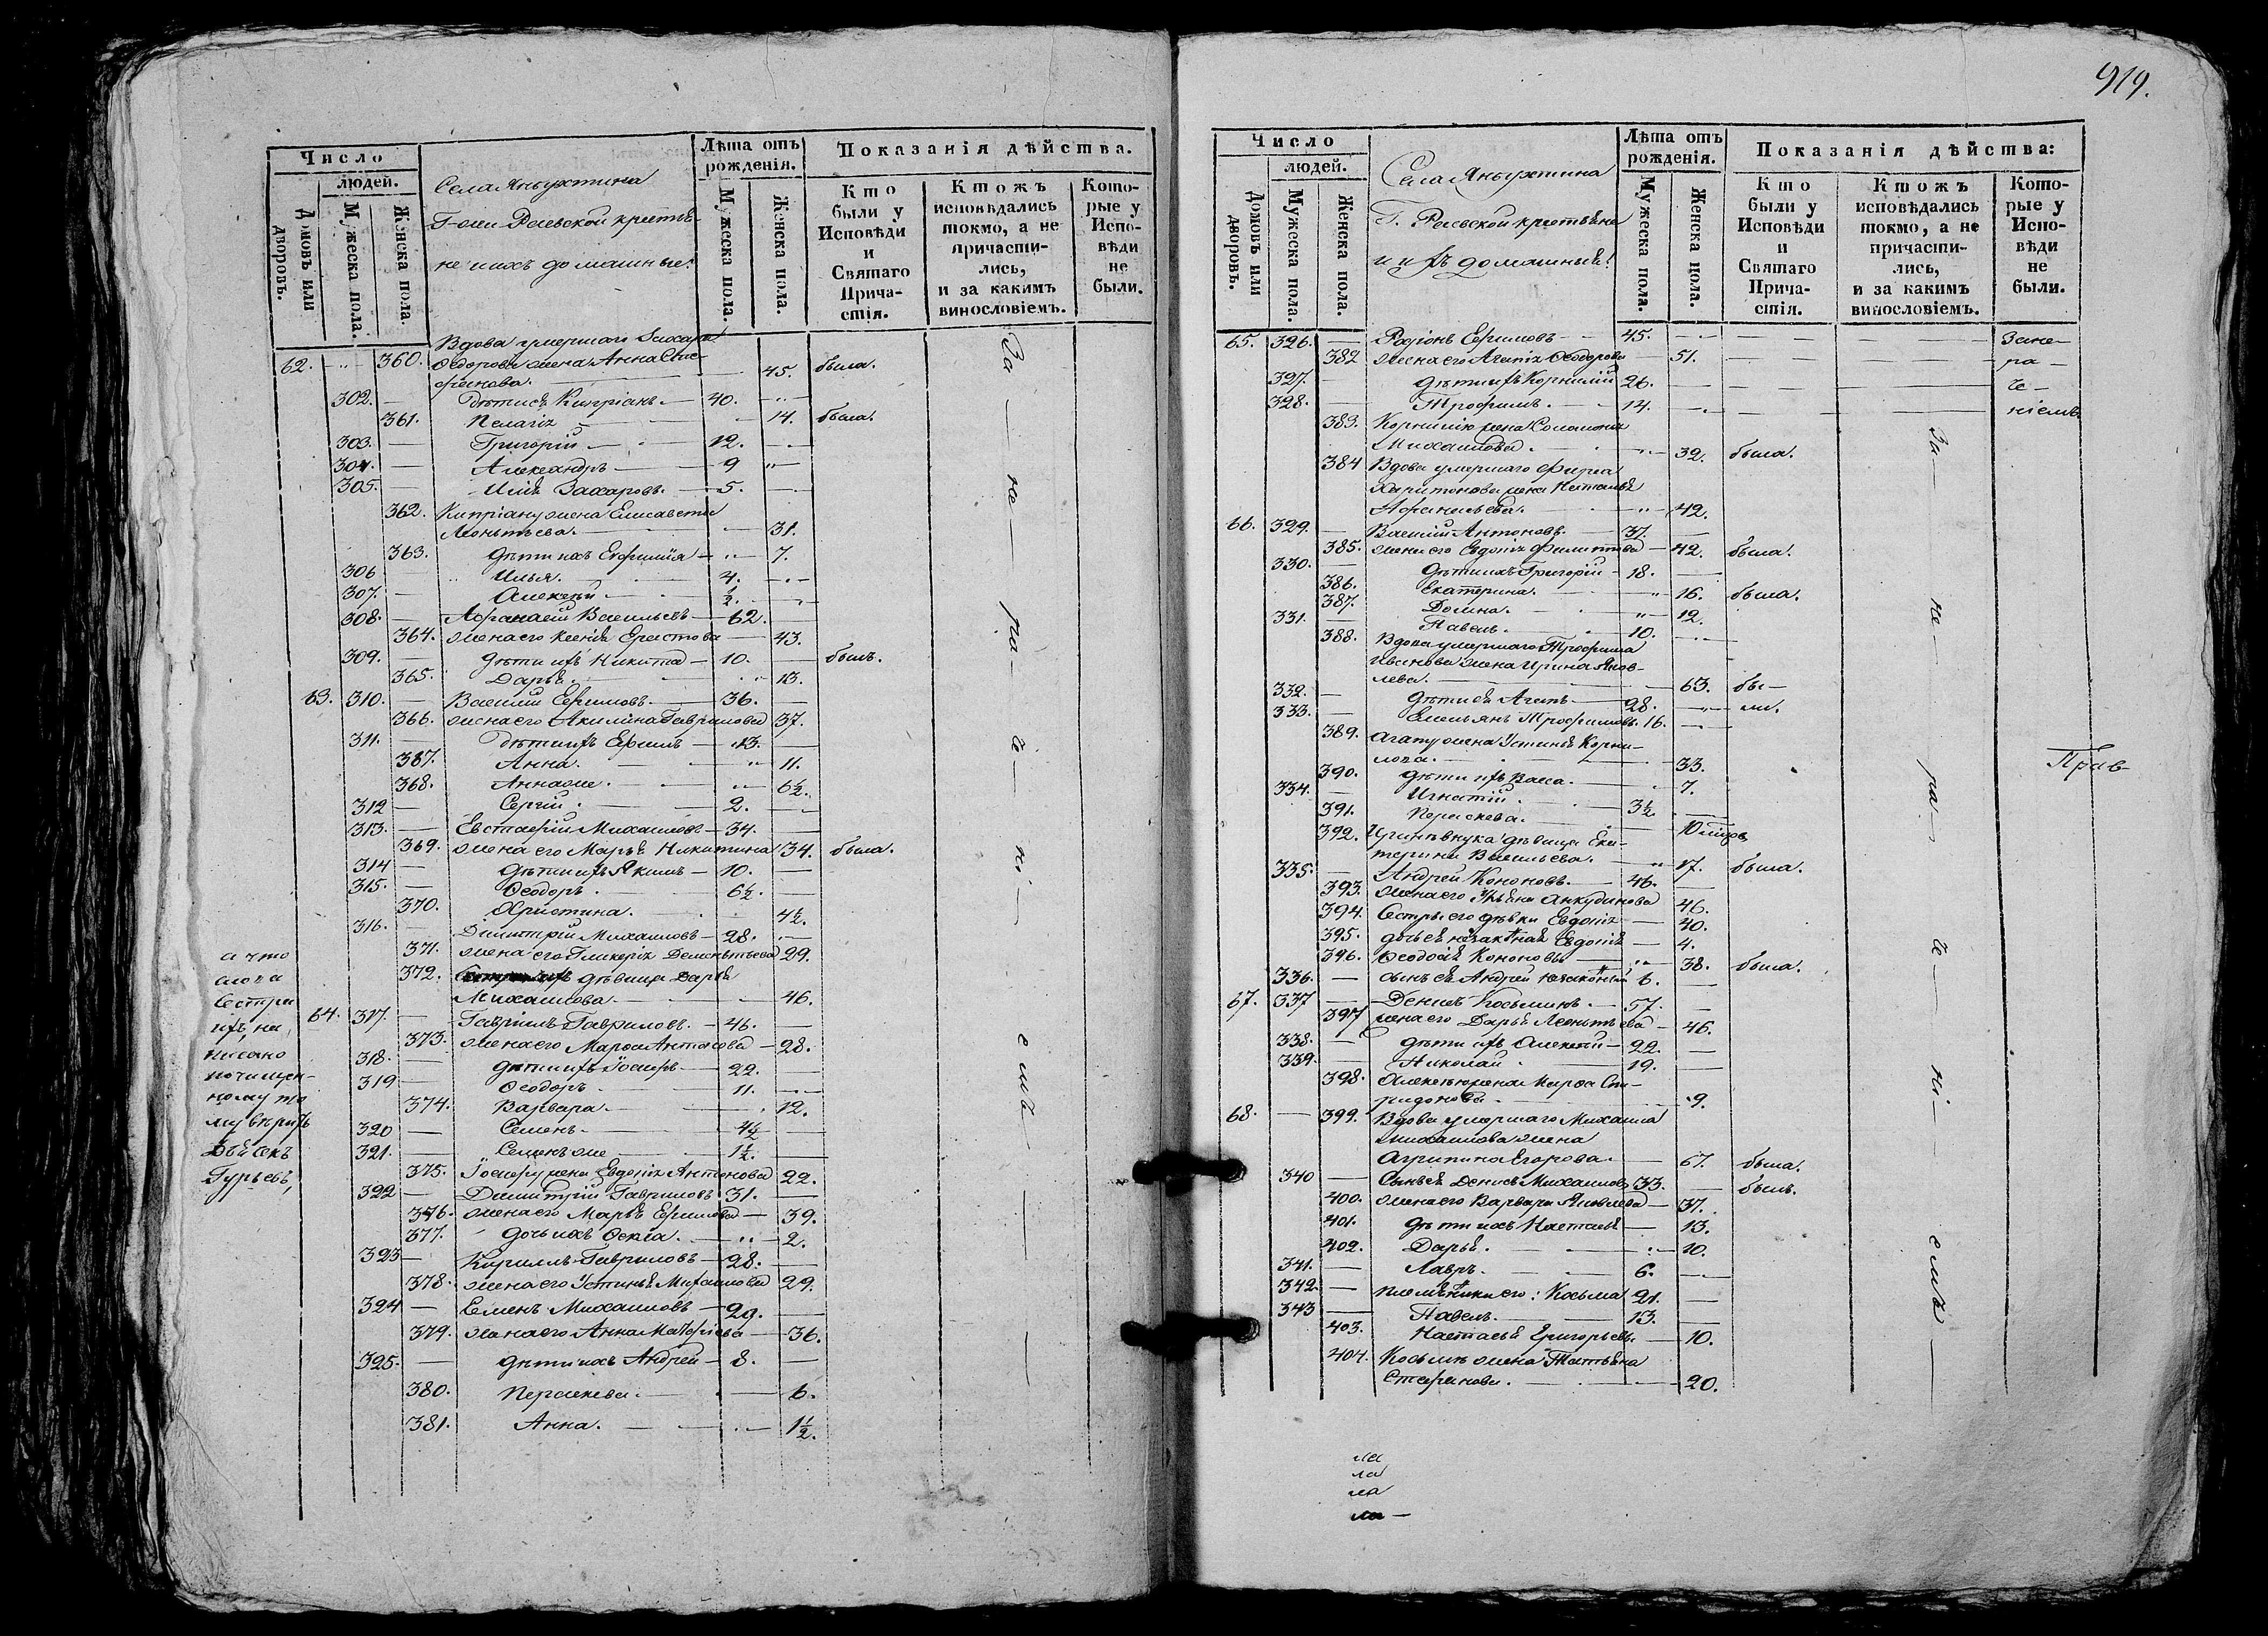 Число
людей.
Домовъ или дворовъ.
Мужеска пола.
Женска пола.
Села Яныхтина
Г-жи Раевской крестья-
не и ихъ домашные:
Лѣта отъ рожденія.
Мужеска пола.
Женска пола.
Показанія дѣйства.
Кто были у Исповѣди и Святаго Прича-стія.
Ктожъ исповѣдались токмо, а не причасти-лись, и за какимъ винословіемъ.
Кото-рые у Испо-вѣди не были.
Вдова умершаго Захара
62. 360. Ѳедорова жена Анна
45. была.
302. Дѣти ея Кипріанъ. 40.
361. Пелагія 14. была.
303. Григорій 12.
304. Александръ 9
305. Илія Захаровъ. 5.
362. Кипріану жена Елисавета
Леонтьева. 31.
363. дѣти ихъ Евфимія 7.
306 Илья. 4.
307. Алексѣй ½.
308. Афанасій Васильевъ 62.
364. жена его Ксенія 43.
309. дѣти ихъ Никита 10. былъ.
365. Дарья. 13.
63. 310. Василій Ефимовъ. 36.
366. жена его Акилина Гаврилова 37.
311. дѣти ихъ Ефимъ 13.
387. Анна. 11.
368. Анна же. 6½.
312 Сергій. 2.
313. Евстафій Михаиловъ 34.
369. жена его Марья Никитина 34. была.
314 дѣти ихъ Якимъ 10.
315. Ѳеодоръ. 6½.
370. Христина. 4½.
316. Димитрій Михаиловъ 28.
371. жена его Гликерія Дементьева 29.
372. дѣвица Дарья
Михаилова 46.
64. 317. Гавріилъ Гавриловъ. 46.
373. жена его Марѳа Антонова 28.
318. дѣти ихъ Іосифъ 22.
319 Ѳеодоръ 11.
374. Варвара. 12.
320 Семенъ. 4½
321. Семенъ же 1½.
375. Іосифу жена Евдокія Антонова 22.
322 Димитрій Гавриловъ 31.
376. жена его Марья Ефимова 39.
377. дочь ихъ Ѳекла. 2.
323 Кириллъ Гавриловъ 28.
378. жена его Устинья Михаилова 29.
324 Семенъ Михаиловъ 29.
379. жена его Анна Матфіева 36.
325. дѣти ихъ Андрей 8.
380. Пераскева. 6.
381. Анна. 1½.
За не ра че ні емъ
а что
слова
сестра
ихъ, на
писано
по чищен-
ному то
му вѣрить
Дьячекъ
Гурьевъ,
919.
Число
людей.
Домовъ или дворовъ.
Мужеска пола.
Женска пола.
Села Яныхтина
Г. Раевской крестьяне
и ихъ домашныя:
Лѣта отъ рожденія.
Мужеска пола.
Женска пола.
Показанія дѣйства:
Кто были у Исповѣди и Святаго Прича-стія.
Ктожъ исповѣдались токмо, а не причасти-лись, и за какимъ винословіемъ.
Кото-рые у Испо-вѣди не были.
65. 326. Родіонъ Ефимовъ 45. Зане-
382 жена его Агапія Ѳеодорова 51. ра-
327. дѣти ихъ Корнилій 26. че-
328. Трофимъ. 14. ніемъ
383. Корнилію жена Соломонія
Михаилова. 32. была.
384 Вдова умершаго Фирса
Харитонова жена Наталья
Афанасьева. 42.
66. 329. Василій Антоновъ. 37.
385. жена его Евдокія Филиппова 42. была.
330. дѣти ихъ Григорій 18.
386. Екатерина. 16. была.
387. Домна. 12.
331. Павелъ. 10.
388. Вдова умершаго Трофима
Иванова жена Ирина Яков-
лева. 63. бы-
332. дѣти ея Агапъ 28. ли.
333. Емельянъ Трофимовъ. 16.
389. Агапу жена Устинья Корни-
лова. 33.
390. дѣти ихъ Васса. 7.
334. Игнатій. 3½.
391. Пераскева.
392. Ирины внука дѣвица Ека-
терина Васильева. 17. была.
335. Андрей Кононовъ. 46.
393. жена его Ульяна Анкудинова 46.
394. Сестры его дѣвки Евдокія 40.
395. дочь ея незаконная Евдокія 4.
396. Ѳеодосія Кононовы 38. была.
336. сынъ ея Андрей незаконный 6.
67. 337 Денисъ Косьминъ. 57.
397 жена его Дарья Леонтьева 46.
338. дѣти ихъ Алексѣй 22.
339. Николай 19.
398. Алексѣю жена Марѳа Спи-
ридонова. 9.
68. 399. Вдова умершаго Михаила
Михаилова жена
Агрипина Егорова. 67. была.
340 Сынъ ея Денисъ Михаиловъ 33. былъ.
400. жена его Варвара Яковлева 37.
401. дѣти ихъ Настасья 13.
402. Дарья. 10.
341. Лавръ. 6.
342. племянники его: Косьма 21.
343 Павелъ. 13.
403. Настасья Григорьевы. 10.
404. Косьмѣ жена Татьяна
Стефанова. 20.
За не ра че ні емъ
Прав-
ла
ла
ла
ла